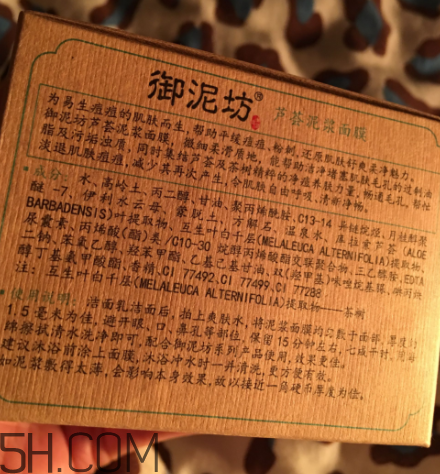 御泥坊® 芦荟泥浆面膜
为易生痘痘的肌肤而生，帮助平缓痘痘、粉刺，还原肌肤轩爽柔净魅力。
御泥坊芦荟泥浆面膜，微细柔滑质地，能帮助洁净堵塞肌肤毛孔的过剩油
脂及污垢浊质，同时集结芦荟及茶树精粹的净痘养肤力量，畅通毛孔，帮忙
淡退肌肤痘痘，减少其再次产生，令肌肤自由呼吸、清新净畅。
成分：水、高岭土、丙二醇、甘油、聚丙烯酰胺、C13-14 异链烷烃、月桂醇聚
醚-7、伊利水云母、蒙脱土、方解石、温泉水、库拉索芦荟(ALOE
BARBADENSIS)叶提取物、互生叶白千层(MELALEUCA ALTERNIFOLIA)提取物、
尿囊素、丙烯酸(酯)类/C10-30 烷醇丙烯酸酯交联聚合物、三乙醇胺、EDTA
二钠、苯氧乙醇、羟苯甲酯、乙基己基甘油、双(羟甲基)咪唑烷基脲、碘丙炔
醇丁基氨甲酸酯、香精、CI 77492、CI 77499、CI 77288
注：互生叶白千层(MELALEUCA ALTERNIFOLIA)提取物——茶树
使用说明：洁面乳洁面后，拍上爽肤水，将泥浆面膜均匀敷于面部，厚度约
1.5 毫米为佳，避开眼、口、鼻孔等部位，保留15分钟左右，七成干时，用海
绵擦拭清水洗净即可。配合御泥坊系列产品使用，效果更佳。
建议沐浴前涂上面膜，沐浴冲水时一并清洗，更方便有效。
如泥浆敷得太薄，会影响本身效果，故以接近一角硬币厚度为佳。
5H.COM